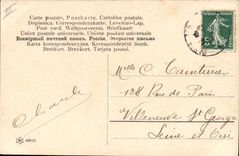 Carte postale, Postkarte, Cartolina postale,
Dopisnica, Correspondenzkarte, Levelező-Lap,
Post card, Weltpostverein, Briefkaart
Union postale universelle, Unione postale universale
Всемірный почтовый союзъ. Россія. Открытое письмо
Karta korespondencyjna, Korespondenční lístek,
Brefkort, Brevkort, Tarjeta postal.
Melle C
128 Rue de Paris
Villeneuve St Georges
Seine et Oise